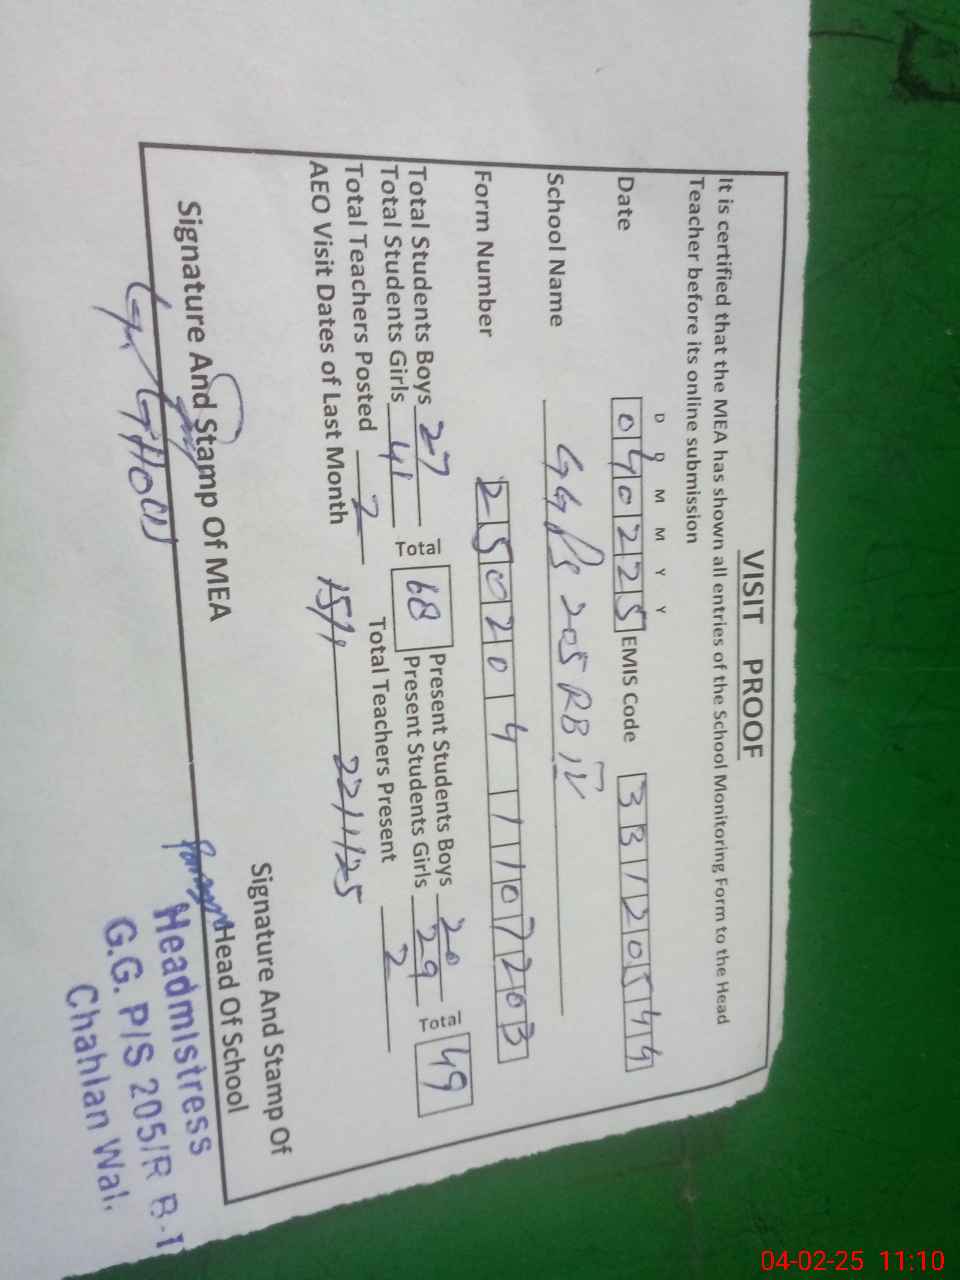 VISIT PROOF
It is certified that the MEA has shown all entries of the School Monitoring Form to the Head
Teacher before its online submission
D D M M Y Y
Date 040225 EMIS Code 33120544
School Name GGPS 205 RB IV
Form Number 25020 4 1107203
Total Students Boys 27 Total 68 Present Students Boys 20 Total 49
Total Students Girls 41 Present Students Girls 29
Total Teachers Posted 2 Total Teachers Present 2
AEO Visit Dates of Last Month 15/1 22/1/25
Signature And Stamp Of MEA
Signature And Stamp Of
Head Of School
Headmistress
G.G. P/S 205/R B-1
Chahlan Wal.
04-02-25 11:10